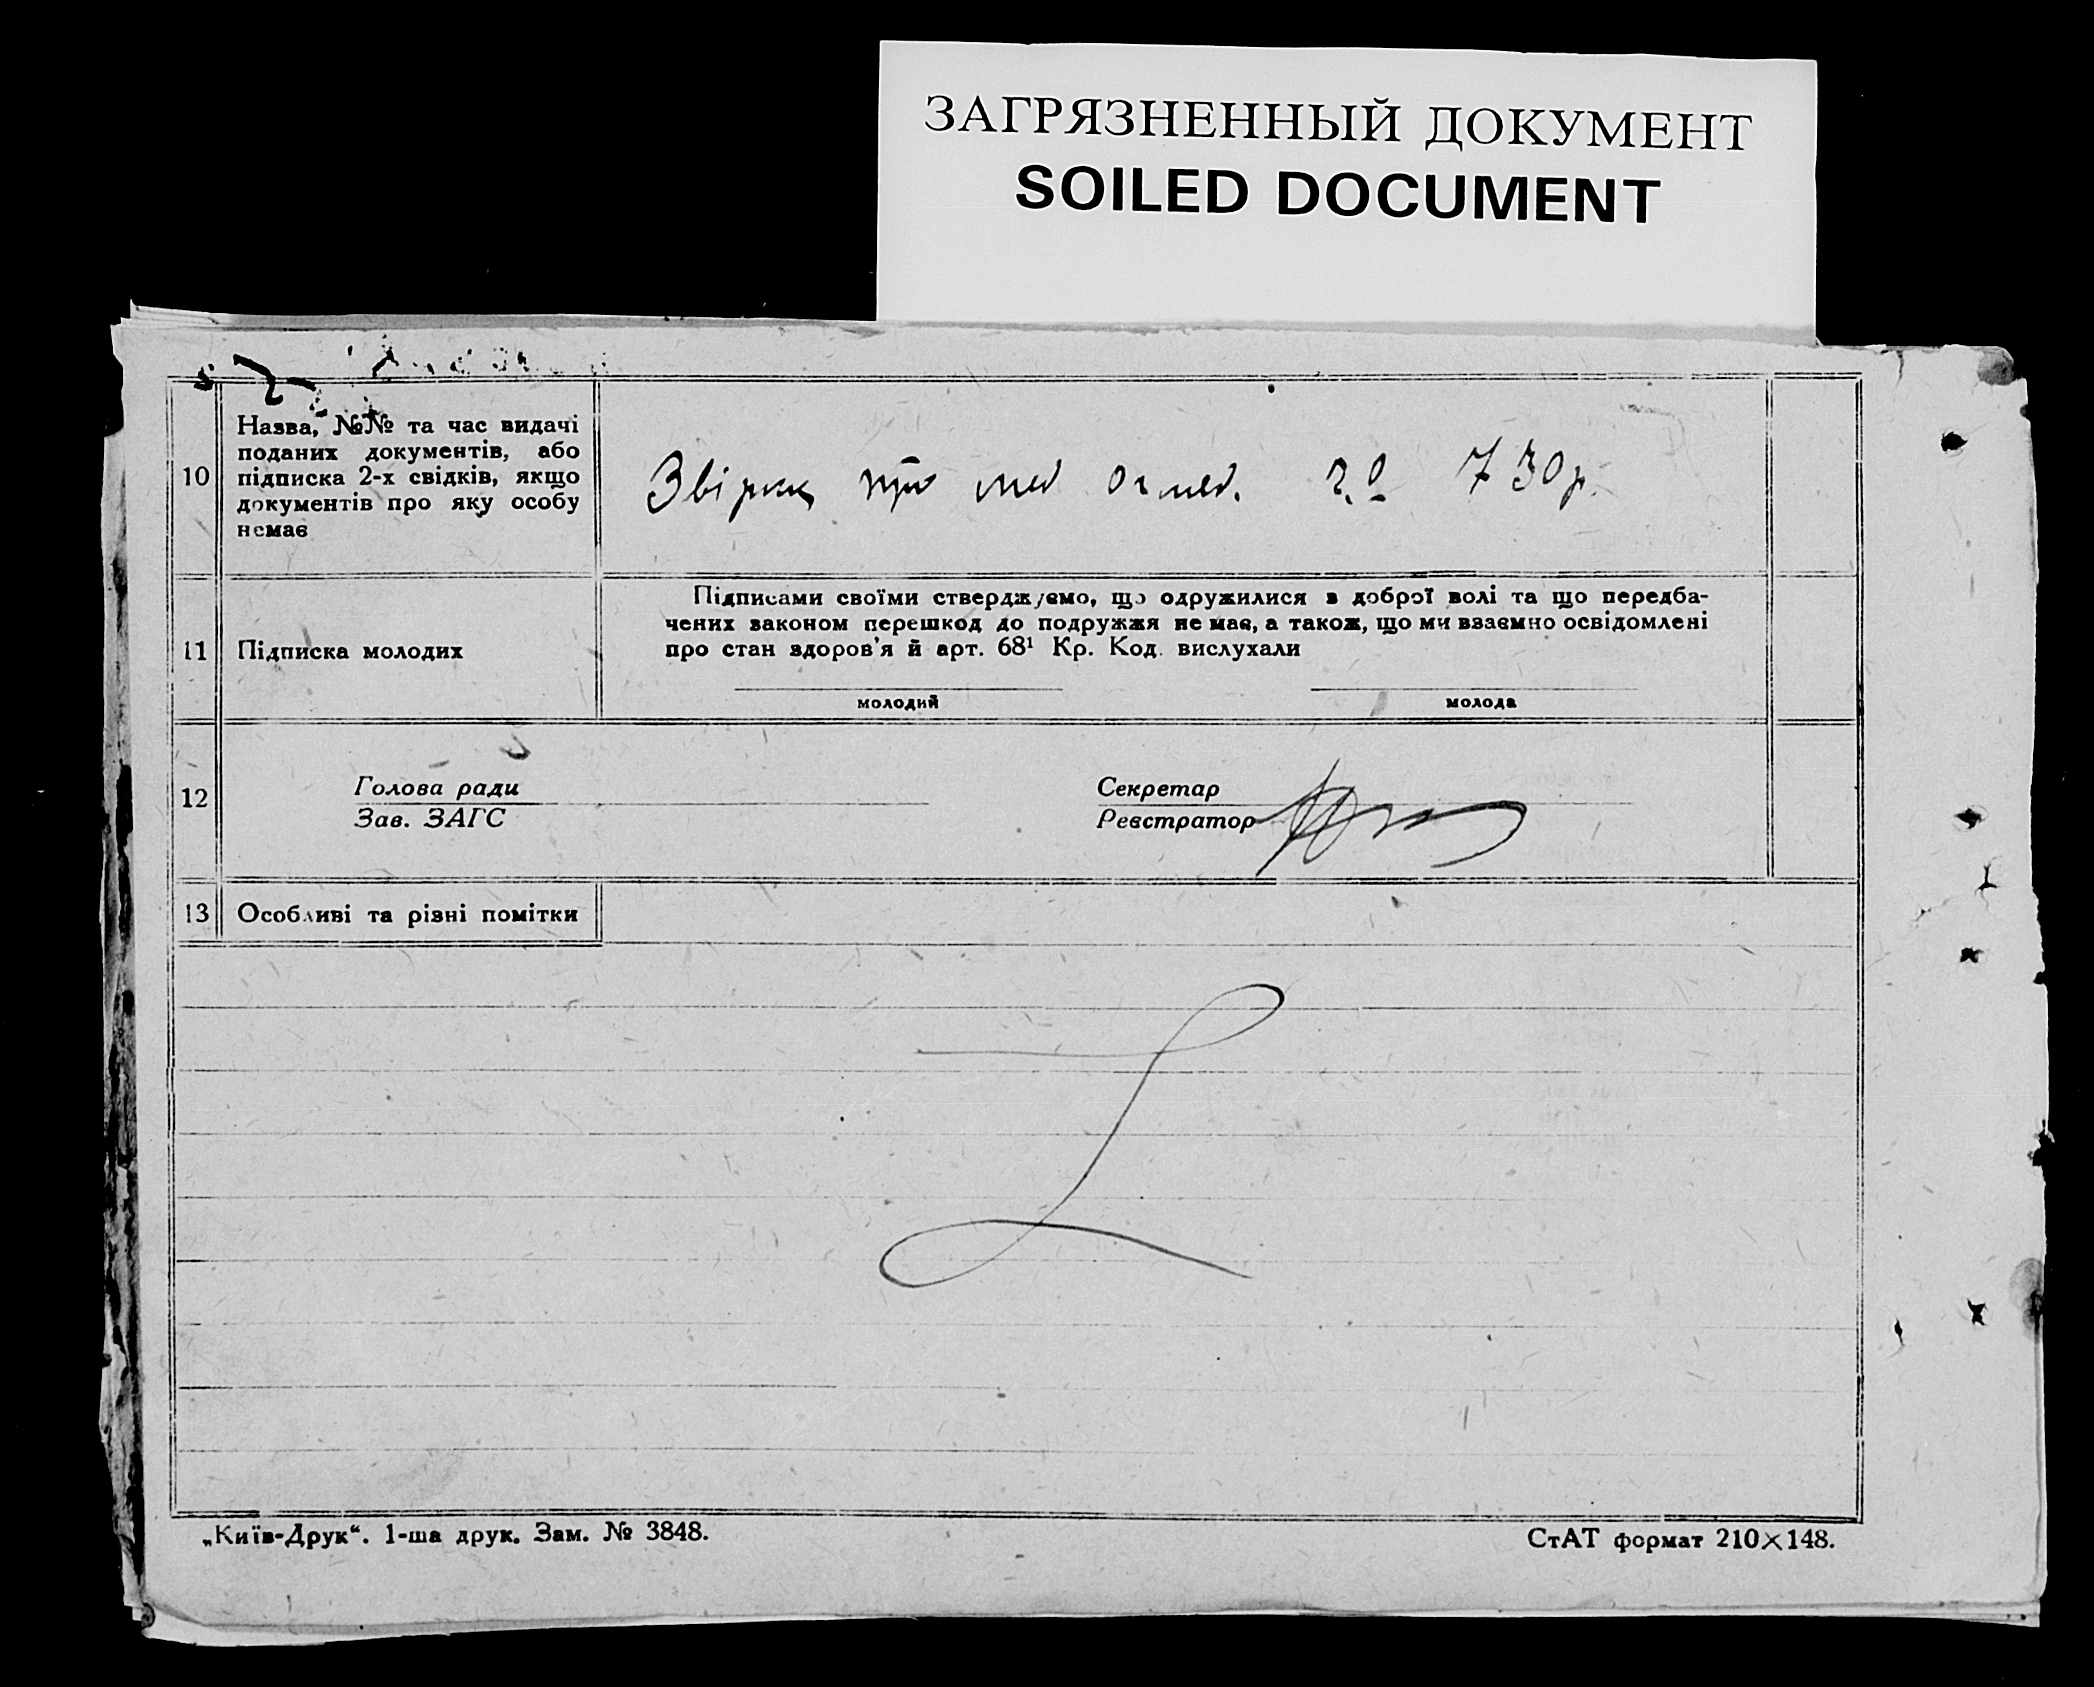 ЗАГРЯЗНЕННЫЙ ДОКУМЕНТ
SOILED DOCUMENT
10
Назва, №№ та час видачі
поданих документів, або
підписка 2-х свідків, якщо
документів про яку особу
немає
730р.
11
Підписка молодих
Підписами своїми стверджуємо, що одружилися з доброї волі та що передба-
чених законом перешкод до подружжя не має, а також, що ми взаємно освідомлені
про стан здоров'я й арт. 68¹ Кр. Код. вислухали
молодий
молода
12
Голова ради
Зав. ЗАГС
Секретар
Реєстратор
13
Особливі та різні помітки
„Київ-Друк“. 1-ша друк. Зам. № 3848.
СтАТ формат 210×148.